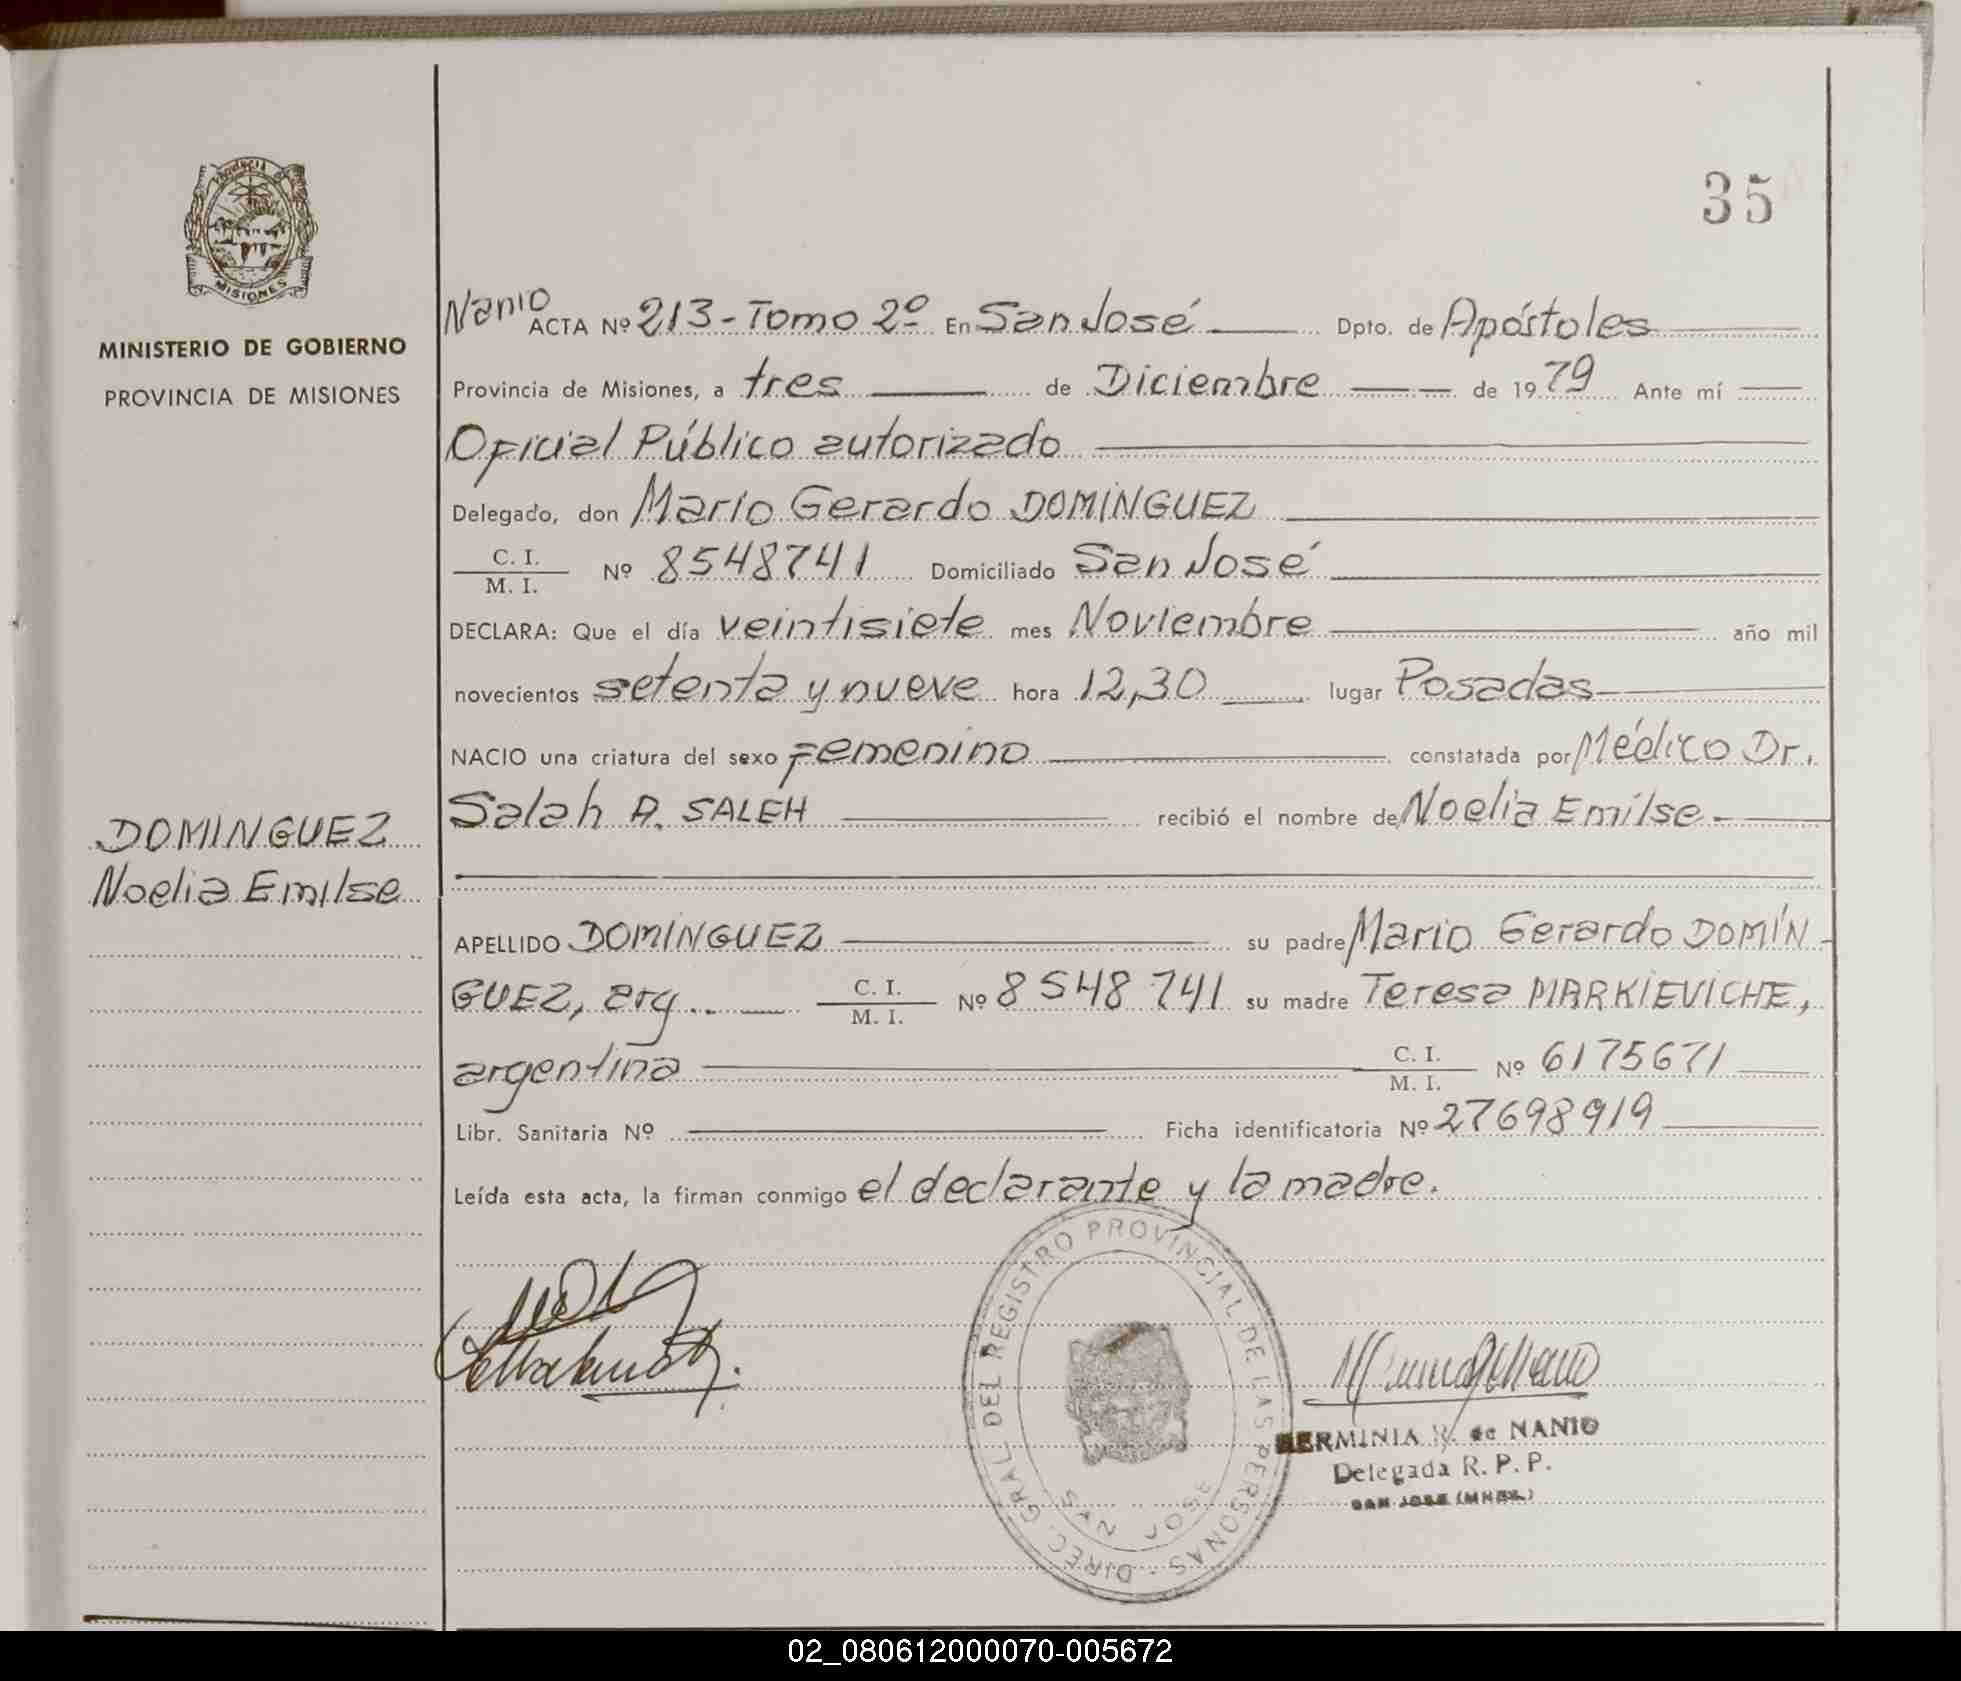 35
PROVINCIA DE
MISIONES
MINISTERIO DE GOBIERNO
PROVINCIA DE MISIONES
Nanio
ACTA Nº 213 - Tomo 2º En San José Dpto. de Apóstoles
Provincia de Misiones, a tres de Diciembre de 1979 Ante mí
Oficial Público autorizado
Delegado, don Mario Gerardo DOMÍNGUEZ
C. I.
M. I. Nº 8548741 Domiciliado San José
DECLARA: Que el día veintisiete mes Noviembre año mil
novecientos setenta y nueve hora 12,30 lugar Posadas
NACIO una criatura del sexo Femenino constatada por Médico Dr.
Salah A. SALEH recibió el nombre de Noelia Emilse
DOMINGUEZ
Noelia Emilse
APELLIDO DOMÍNGUEZ su padre Mario Gerardo DOMÍN-
GUEZ, arg.. C. I.
M. I. Nº 8548741 su madre Teresa MARKIEVICHE,
argentina C. I.
M. I. Nº 6175671
Libr. Sanitaria Nº Ficha identificatoria Nº 27698919
Leída esta acta, la firman conmigo el declarante y la madre.
DIREC. GRAL. DEL REGISTRO PROVINCIAL DE LAS PERSONAS -
SAN JOSE
HERMINIA R. de NANIO
Delegada R. P. P.
SAN JOSE (MNES.)
02_080612000070-005672